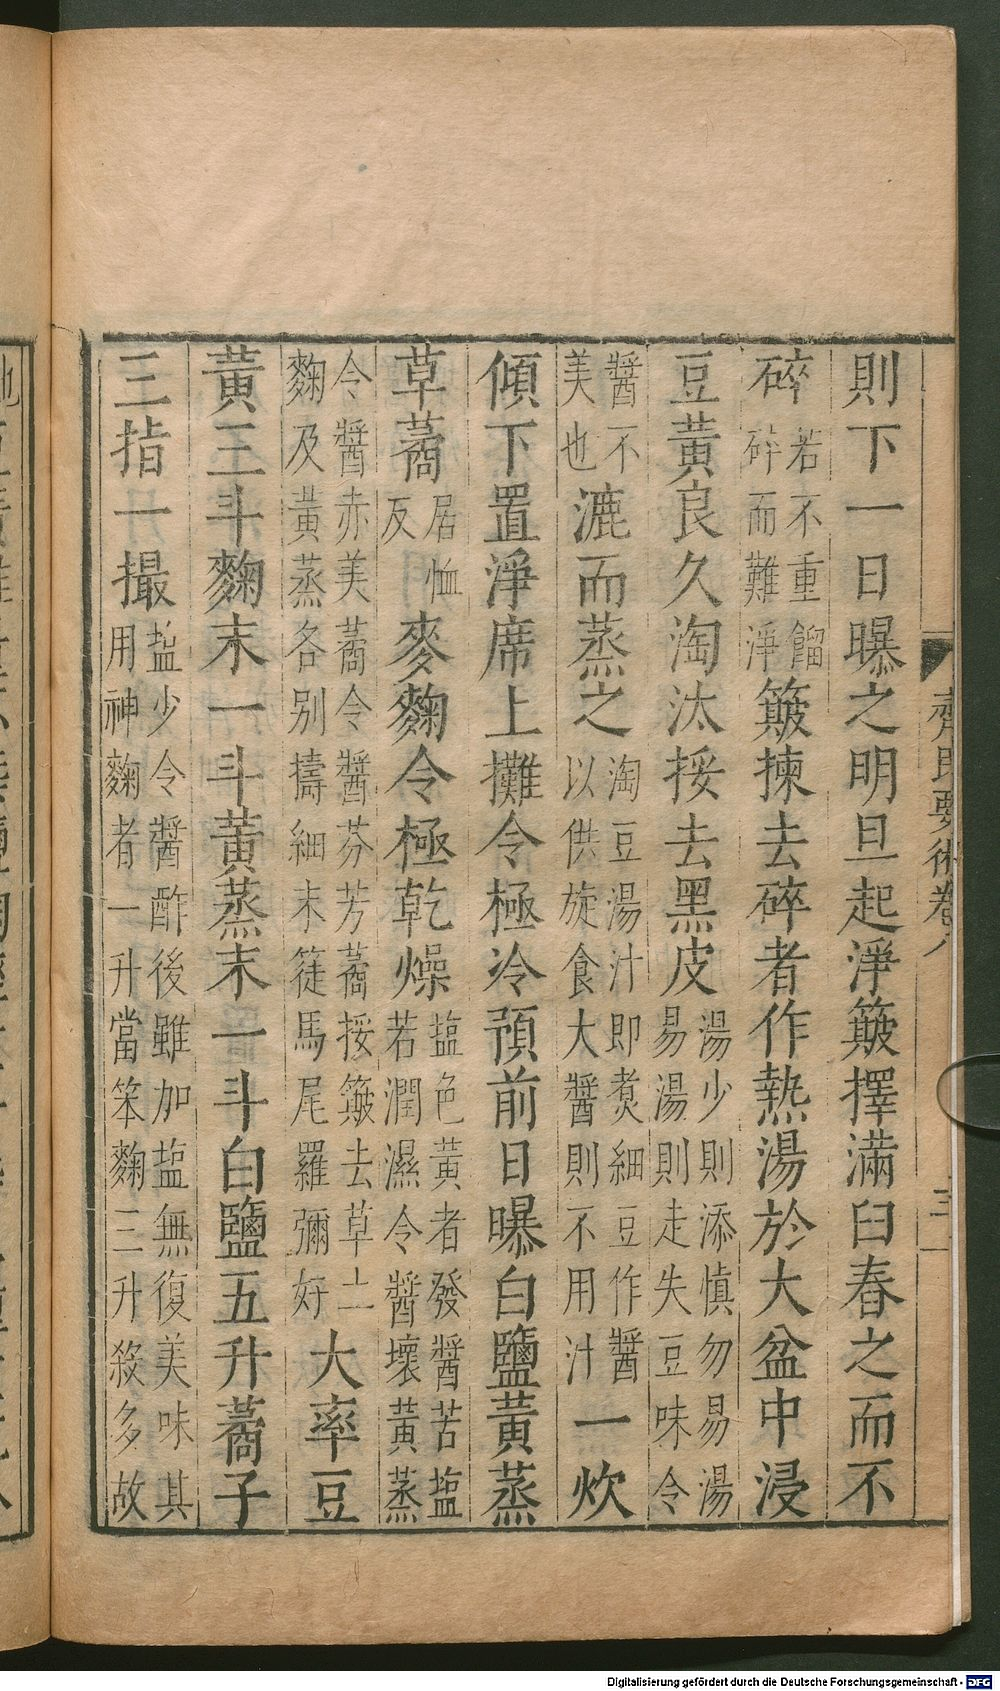 則下一日曝之明旦起淨簸擇滿臼舂之而不
碎若不重餾碎而難淨簸揀去碎者作熱湯於大盆中浸
豆黃良久淘汰挼去黑皮湯少則添慎勿易湯易湯則走失豆味令
醬不美也漉而蒸之淘豆湯汁即煑細豆作醬以供旋食大醬則不用汁一炊
傾下置淨席上攤令極冷預前日曝白鹽黃蒸
草蕎居恤反麥麴令極乾燥塩色黃者發醬苦塩若潤濕令醬壞黃蒸
令醬赤美蕎令醬芬芳蕎挼簸去草土麴及黃蒸各别擣細末簁馬尾羅彌好大率豆
黃三斗麴末一斗黃蒸末一斗白鹽五升蕎子
三指一撮塩少令醬酢後雖加塩無復美味其用神麴者一升當笨麴三升殺多故
齊民要術卷八
三
Digitalisierung gefördert durch die Deutsche Forschungsgemeinschaft - DFG